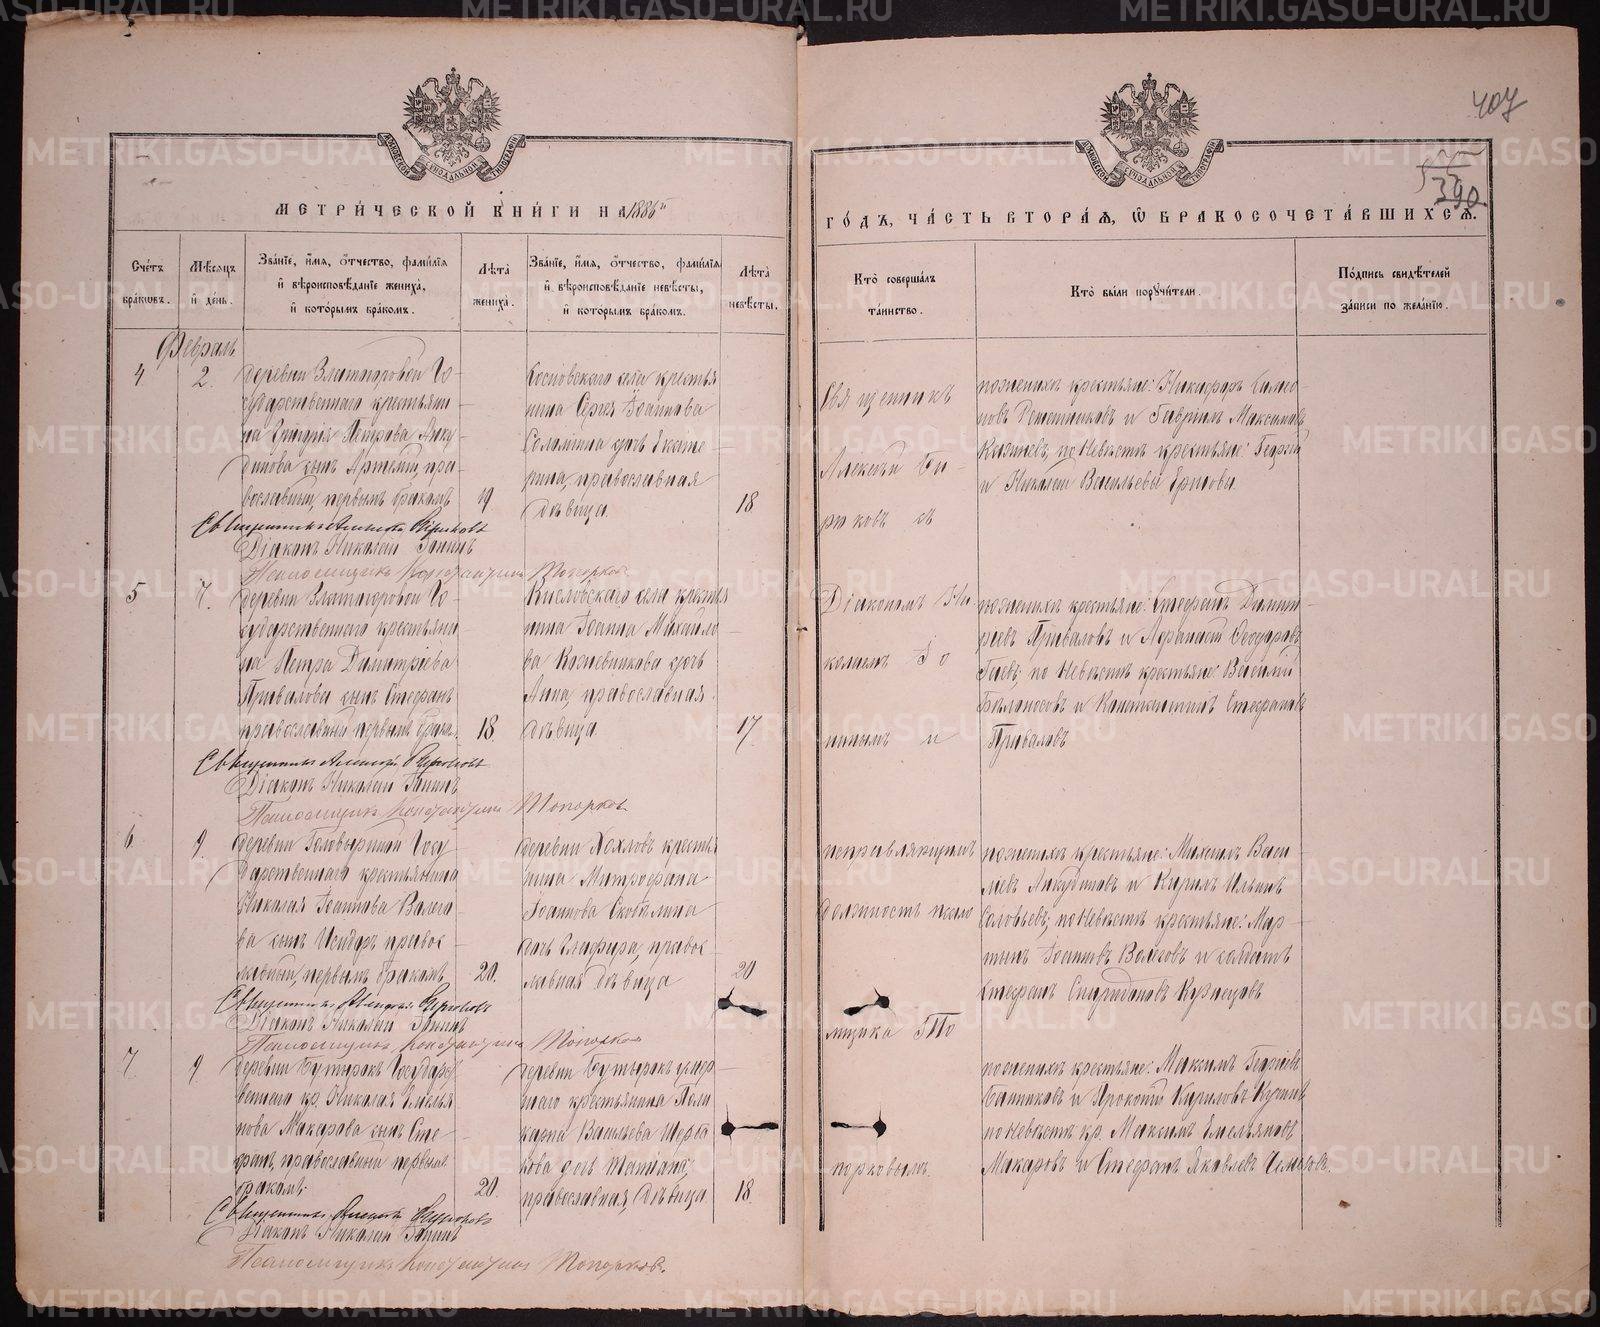 407
390
МЕТРИЧЕСКОЙ КНИГИ НА 1886й
ГОДЪ, ЧАСТЬ ВТОРАЯ, Ѡ БРАКОСОЧЕТАВШИХСЯ.
Счетъ браковъ.
Мѣсяцъ и день.
Званіе, имя, отчество, фамилія
и вѣроисповѣданіе жениха,
и которымъ бракомъ.
Лѣта жениха.
Званіе, имя, отчество, фамилія
и вѣроисповѣданіе невѣсты,
и которымъ бракомъ.
Лѣта невѣсты.
Кто совершалъ таинство.
Кто были поручители.
Подпись свидѣтелей записи по желанію.
Февраль
4
2.
деревни Златогоровой Го-
сударственнаго крестьяни
на Григорія Петрова Анку
динова сынъ Артемій, пра-
вославный, первымъ бракомъ
19
Косновскаго села крестья
нина Сергѣя Іоаннова
Соломина дочь Екате
рина, православная
дѣвица
18
Священникъ
Алексѣй Би-
рюковъ съ
по женихѣ крестьяне: Никифоръ Симео
новъ Решетниковъ и Гавріилъ Максимовъ
по невѣстѣ крестьяне: Георгій
и Николай Васильевы
Священникъ Алексѣй Бирюковъ
Діаконъ Николай Топинъ
Псаломщикъ Константинъ Топорковъ
5
7.
деревни Златогоровой Го-
сударственнаго крестьяни
на Петра Димитріева
Привалова сынъ Стефанъ
православный первымъ брак.
18
Кисловскаго села крестья
нина Іоанна Михайло
ва Кожевникова дочь
Анна, православная
дѣвица
17
Діакономъ Ни
колаемъ То
пинымъ и
по женихѣ крестьяне: Стефанъ Димит
ріевъ Приваловъ и Афанасій Ѳеодоровъ
по невѣстѣ крестьяне: Василій
Бѣлоносовъ и Константинъ Стефановъ
Приваловъ
Священникъ Алексѣй Бирюковъ
Діаконъ Николай Топинъ
Псаломщикъ Константинъ Топорковъ
6
9
деревни Головыриной Госу
дарственнаго крестьянина
Николая Іоаннова Волего
ва сынъ Исидоръ правос
лавный, первымъ бракомъ
20.
деревни Хохловъ крестья
нина Митрофана
Іоаннова Скобѣлина
дочь Глафира, правос
лавная дѣвица
20
исправляющимъ
должность псало
мщика То
по женихѣ крестьяне: Михаилъ Васи
ліевъ Анкудиновъ и Кирилъ Ильинъ
Соловьевъ; по невѣстѣ крестьяне: Мар
тынъ Іоанновъ Волеговъ и солдатъ
Стефанъ Спиридоновъ Кузнецовъ
Священникъ Алексѣй Бирюковъ
Діаконъ Николай Топинъ
Псаломщикъ Константинъ Топорковъ
7
9
деревни Бутыракъ Государс
веннаго кр. Николая Емелья
нова Макарова сынъ Сте
фанъ, православный первымъ
бракомъ.
20.
деревни Бутыракъ
наго крестьянина Поли
карпа Васильева Щерба
кова дочь Татіана,
православная, дѣвица
18
порковымъ.
по женихѣ крестьяне: Максимъ Георгіевъ
Банниковъ и Прокопій Кириловъ
по невѣстѣ кр. Максимъ Емельяновъ
Макаровъ и Стефанъ Яковлевъ
Священникъ Алексѣй Бирюковъ
Діаконъ Николай Топинъ
Псаломщикъ Константинъ Топорковъ.
METRIKI.GASO-URAL.RU